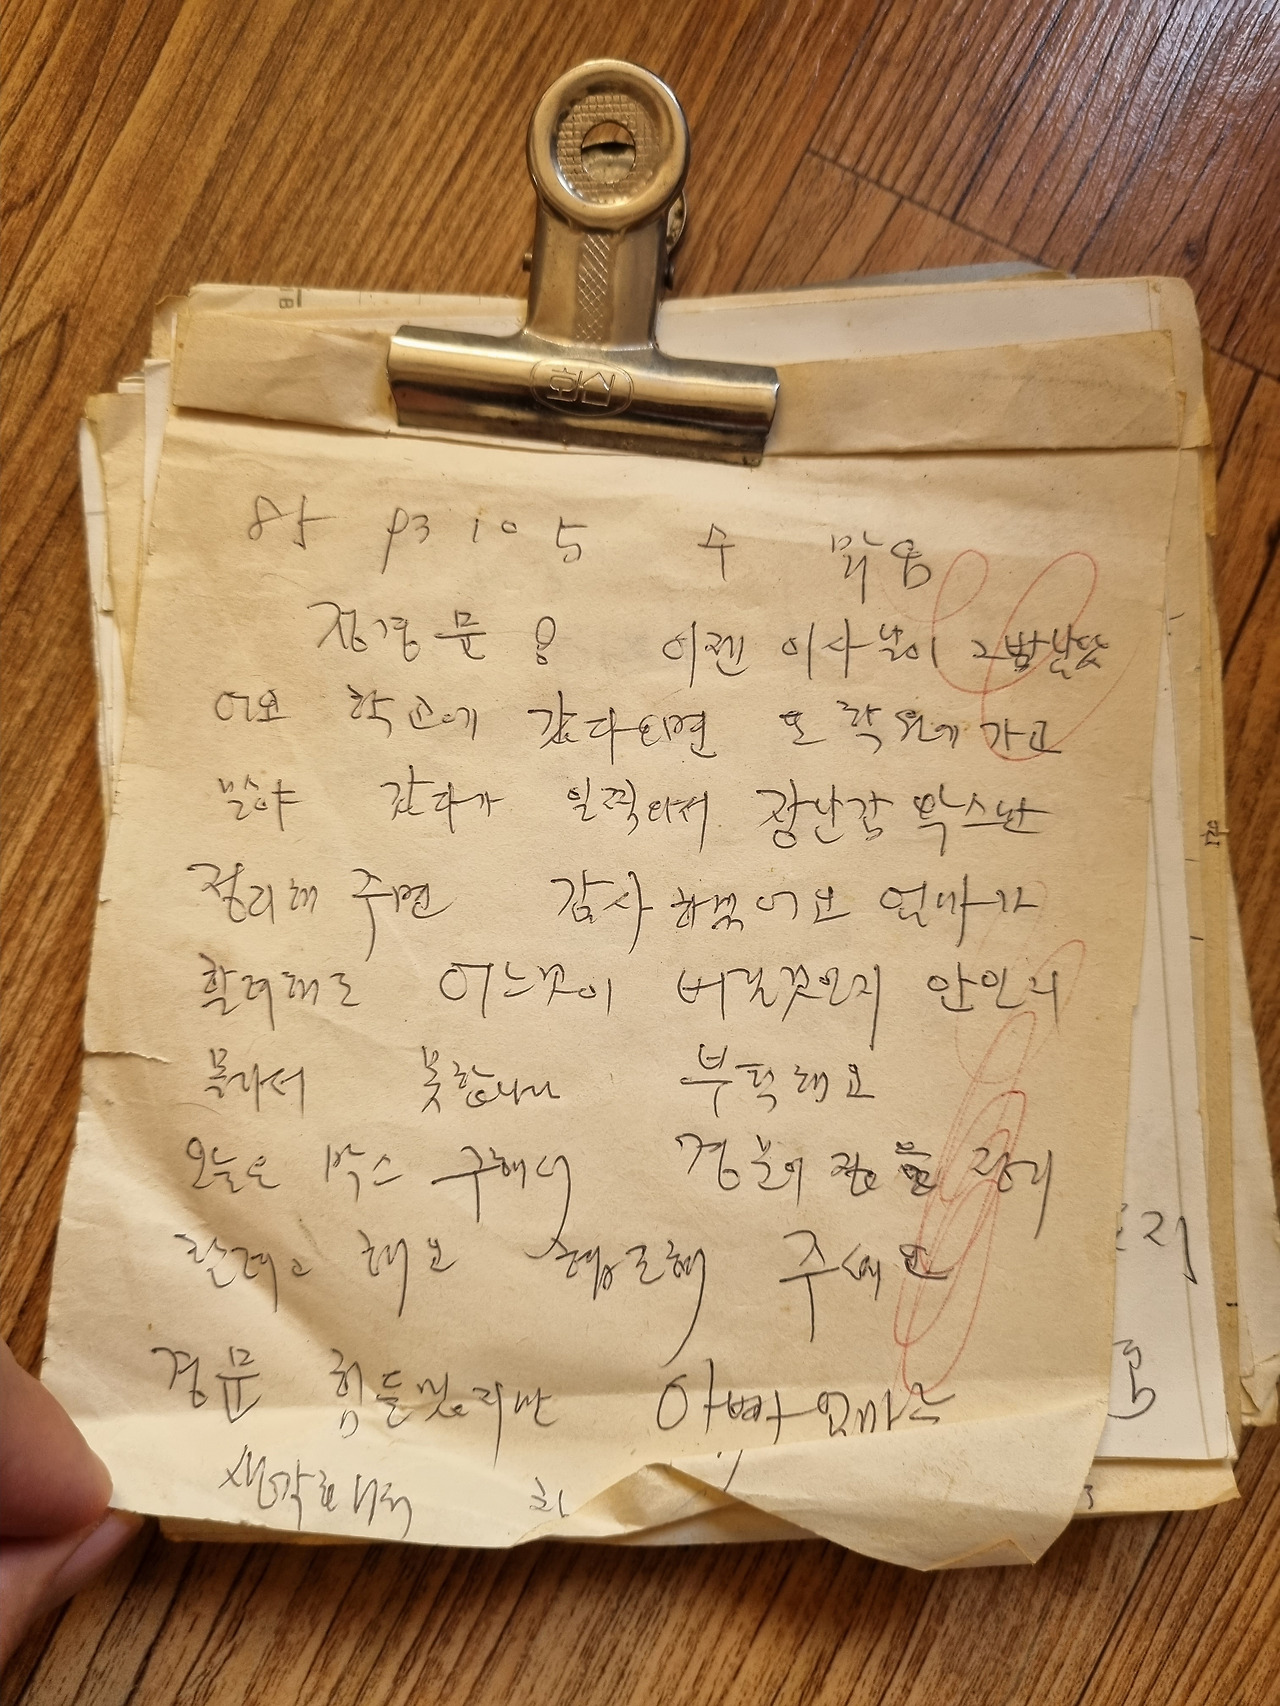 화신
93 10 5 수 맑음
정경문 이젠 이사날이 그밤날았
어요 학교에 갔다오면 또 학원에 가고
갔다가 일찍와서 장난감 박스난
정리해 주면 감사하겠어요 엄마가
할려해도 어느것이 버릴것인지 안인지
몰라서 못합니다 부탁해요
오늘은 박스 구해서 경문이 정리
할려고 해요 협조해 주세요
경문 힘들겠지만 아빠 엄마는
생각해서